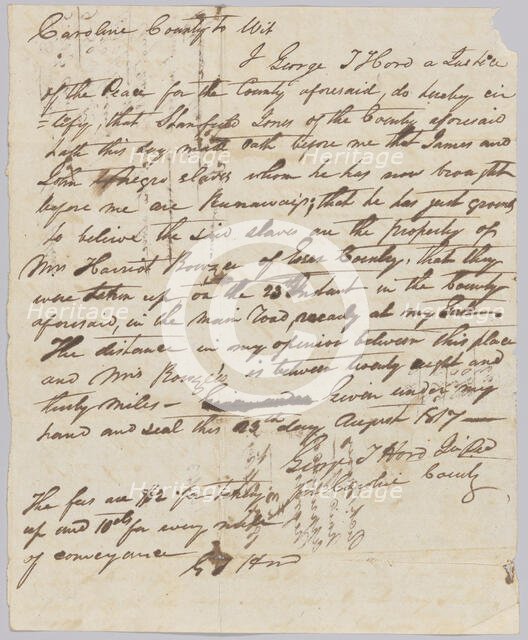 Caroline County to Wit
I George T Hord a Justice
of the Peace for the County aforesaid, do hereby cer
=tify, that Stanfield Jones of the County aforesaid
hath this day made Oath before me that James and
John negro slaves whom he has now brought
before me are Runaways; that he has just grounds
to believe the said slaves are the property of
Mrs Harriot Rowzee of Essex County, that they
were taken up on the 23rd Instant in the County
aforesaid, in the main road, nearly at my
The distance in my opinion between this place
and Mrs Rowzees is between twenty eight and
thirty miles – Given under my
hand and seal this day August 1817 —
George T Hord
for Caroline County
The fees are for taking
up and 10cts for every mile
of conveyance
G T Hord
Heritage
Heritage
Heritage
Heritage
Heritage
Heritage